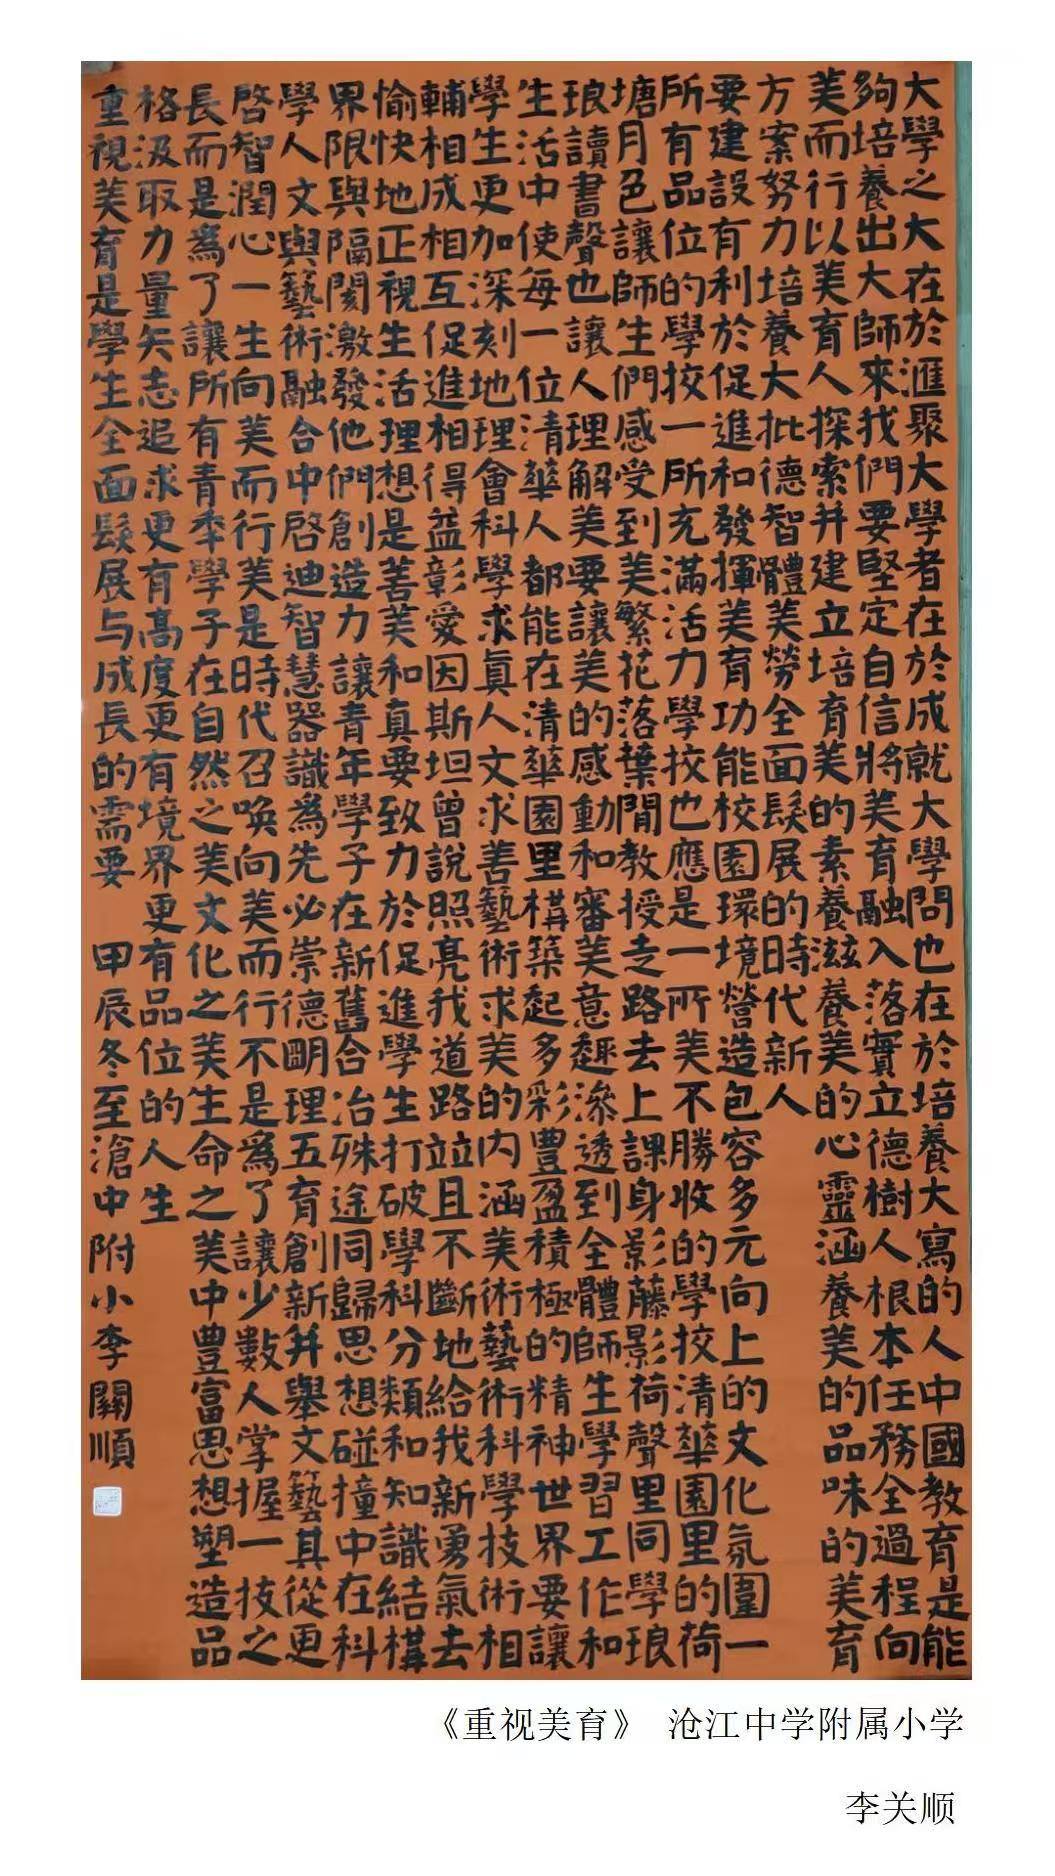 大學之大在於滙聚大學者在於成就大學問也在於培養大寫的人中國教育是能
夠培養出大師來我們要堅定自信將美育融入落實立德樹人根本任務全過程向
美而行以美育人探索并建立培育美的素養滋養美的心靈涵養美的品味的美育
方案努力培養大批德智體美勞全面髮展的時代新人
要建設有利於促進和發揮美育功能校園環境營造包容多元向上的文化氛圍一
所有品位的學挍一所充滿活力學挍也應是一所美不勝收的學挍清華園里的荷
塘月色讓師生們感受到美繁花落葉間教授走路去上課身影藤影荷聲里同學琅
琅讀書聲也讓人理解美要讓美的感動和審美意趣滲透到全體師生學習工作和
生活中使每一位清華人都能在清華園里構築起多彩豐盈積極的精神世界要讓
學生更加深刻地理會科學求真人文求善藝術求美的内涵美術藝術科學技術相
輔相成相互促進相得益彰愛因斯坦曾說照亮我道路竝且不斷地給我新勇氣去
愉快地正視生活理想是善美和真要致力於促進學生打破學科分類和知識結構
界限與隔閡激發他們創造力讓青年學子在新舊合冶殊途同歸思想碰撞中在科
學人文與藝術融合中啓迪智慧器識為先必崇德明理五育創新并舉文藝其從更
啓智潤心一生向美而行美是時代召喚向美而行不是為了讓少數人掌握一技之
長而是為了讓所有青年學子在自然之美文化之美生命之美中豐富思想塑造品
格汲取力量矢志追求更有高度更有境界更有品位的人生
重視美育是學生全面髮展与成長的需要 甲辰冬至滄中附小李關順
《重视美育》 沧江中学附属小学
李关顺